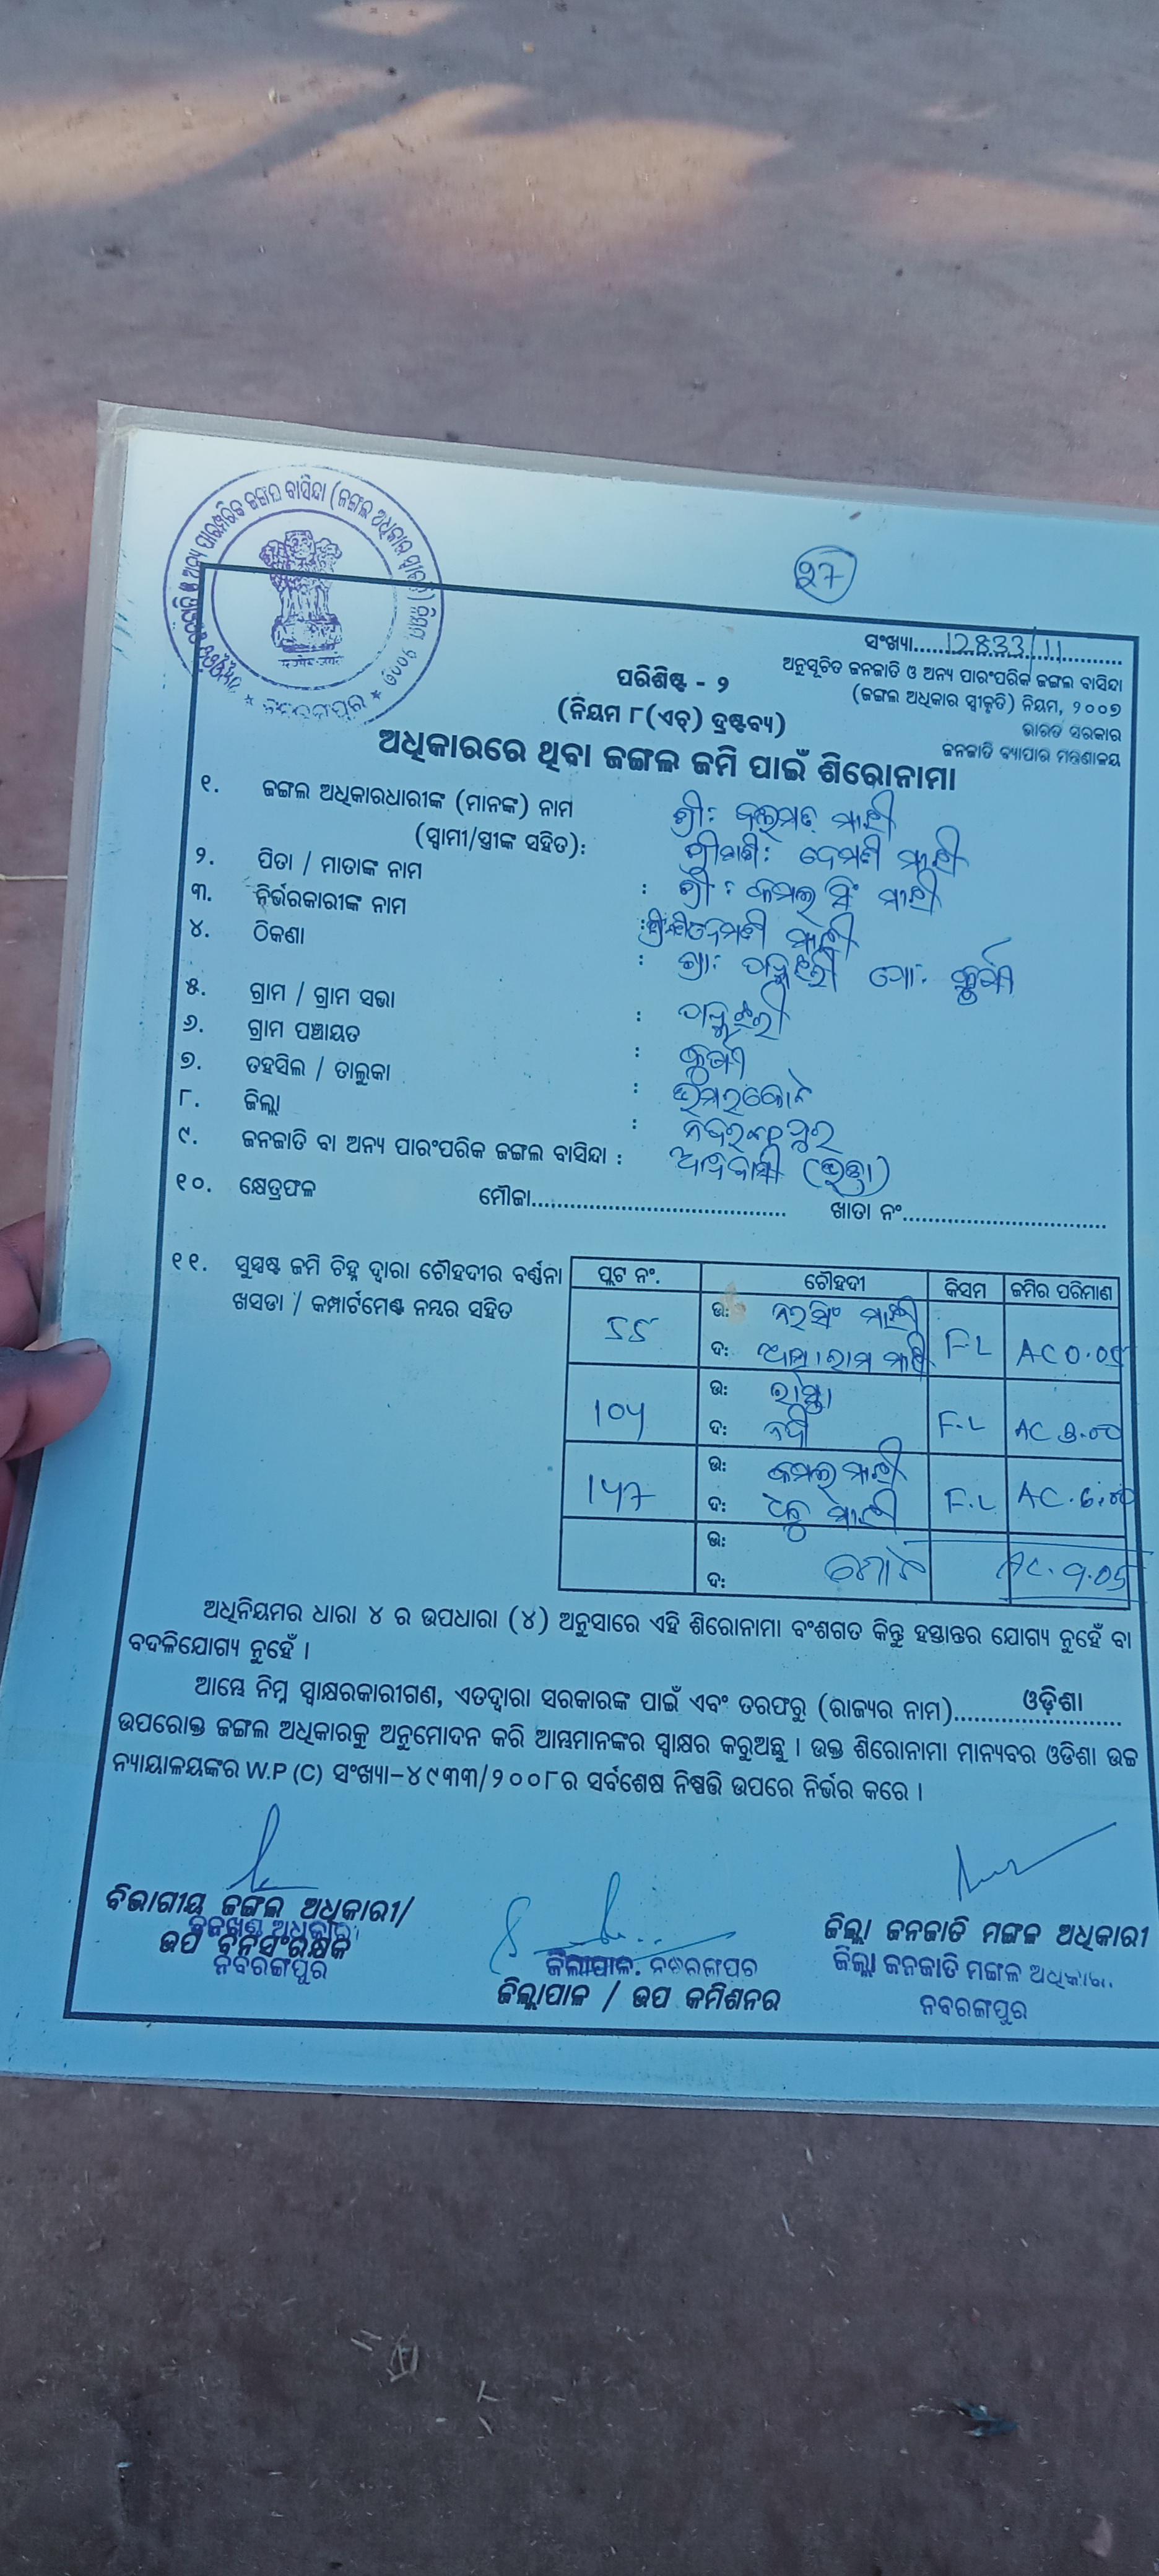 ୨7
ସଂଖ୍ୟା....12833/11....
ଅନୁସୂଚିତ ଜନଜାତି ଓ ଅନ୍ୟ ପାରଂପରିକ ଜଙ୍ଗଲ ବାସିନ୍ଦା
(ଜଙ୍ଗଲ ଅଧିକାର ସ୍ୱୀକୃତି) ନିୟମ, ୨୦୦୭
ଭାରତ ସରକାର
ଜନଜାତି ବ୍ୟାପାର ମନ୍ତ୍ରଣାଳୟ
ପରିଶିଷ୍ଟ - ୨
(ନିୟମ ୮(ଏଚ୍) ଦ୍ରଷ୍ଟବ୍ୟ)
ଅଧିକାରରେ ଥିବା ଜଙ୍ଗଲ ଜମି ପାଇଁ ଶିରୋନାମା
୧. ଜଙ୍ଗଲ ଅଧିକାରଧାରୀଙ୍କ (ମାନଙ୍କ) ନାମ ଶ୍ରୀ: ମାଝୀ
(ସ୍ୱାମୀ/ସ୍ତ୍ରୀଙ୍କ ସହିତ): ଶ୍ରୀମତୀ: ମାଝୀ
୨. ପିତା / ମାତାଙ୍କ ନାମ : ଶ୍ରୀ : ସିଂ ମାଝୀ
୩. ନିର୍ଭରକାରୀଙ୍କ ନାମ : ମାଝୀ
୪. ଠିକଣା : ଗ୍ରା:
୫. ଗ୍ରାମ / ଗ୍ରାମ ସଭା :
୬. ଗ୍ରାମ ପଞ୍ଚାୟତ :
୭. ତହସିଲ / ତାଲୁକା : ଉମରକୋଟ
୮. ଜିଲ୍ଲା : ନବରଙ୍ଗପୁର
୯. ଜନଜାତି ବା ଅନ୍ୟ ପାରଂପରିକ ଜଙ୍ଗଲ ବାସିନ୍ଦା : ଆଦିବାସୀ
୧୦. କ୍ଷେତ୍ରଫଳ ମୌଜା........ ଖାତା ନଂ........
୧୧. ସୁସ୍ପଷ୍ଟ ଜମି ଚିହ୍ନ ଦ୍ୱାରା ଚୌହଦୀର ବର୍ଣ୍ଣନା
ଖସଡା / କମ୍ପାର୍ଟମେଣ୍ଟ ନମ୍ବର ସହିତ
ପ୍ଲଟ ନଂ. ଚୌହଦୀ କିସମ ଜମିର ପରିମାଣ
55 ଉ: ନରସିଂ ମାଝୀ F-L AC 0.05
ଦ: ମାଝୀ
104 ଉ: ରାସ୍ତା F.L AC 3.00
ଦ: ନଦୀ
147 ଉ: କମଲ ମାଝୀ F.L AC.6.00
ଦ: ମାଝୀ
ଉ:
ଦ: ମୋଟ AC.9.05
ଅଧିନିୟମର ଧାରା ୪ ର ଉପଧାରା (୪) ଅନୁସାରେ ଏହି ଶିରୋନାମା ବଂଶଗତ କିନ୍ତୁ ହସ୍ତାନ୍ତର ଯୋଗ୍ୟ ନୁହେଁ ବା
ବଦଳିଯୋଗ୍ୟ ନୁହେଁ ।
ଆମ୍ଭେ ନିମ୍ନ ସ୍ୱାକ୍ଷରକାରୀଗଣ, ଏତଦ୍ୱାରା ସରକାରଙ୍କ ପାଇଁ ଏବଂ ତରଫରୁ (ରାଜ୍ୟର ନାମ)........ଓଡ଼ିଶା........
ଉପରୋକ୍ତ ଜଙ୍ଗଲ ଅଧିକାରକୁ ଅନୁମୋଦନ କରି ଆମ୍ଭମାନଙ୍କର ସ୍ୱାକ୍ଷର କରୁଅଛୁ । ଉକ୍ତ ଶିରୋନାମା ମାନ୍ୟବର ଓଡିଶା ଉଚ୍ଚ
ନ୍ୟାୟାଳୟଙ୍କର W.P (C) ସଂଖ୍ୟା-୪୯୩୩/୨୦୦୮ର ସର୍ବଶେଷ ନିଷ୍ପତ୍ତି ଉପରେ ନିର୍ଭର କରେ ।
ବିଭାଗୀୟ ଜଙ୍ଗଲ ଅଧିକାରୀ/
ବନଖଣ୍ଡ ଅଧିକାରୀ
ଉପ ବନସଂରକ୍ଷକ
ନବରଙ୍ଗପୁର
ଜିଲ୍ଲାପାଳ, ନବରଙ୍ଗପୁର
ଜିଲ୍ଲାପାଳ / ଉପ କମିଶନର
ଜିଲ୍ଲା ଜନଜାତି ମଙ୍ଗଳ ଅଧିକାରୀ
ଜିଲ୍ଲା ଜନଜାତି ମଙ୍ଗଳ ଅଧିକାରୀ
ନବରଙ୍ଗପୁର